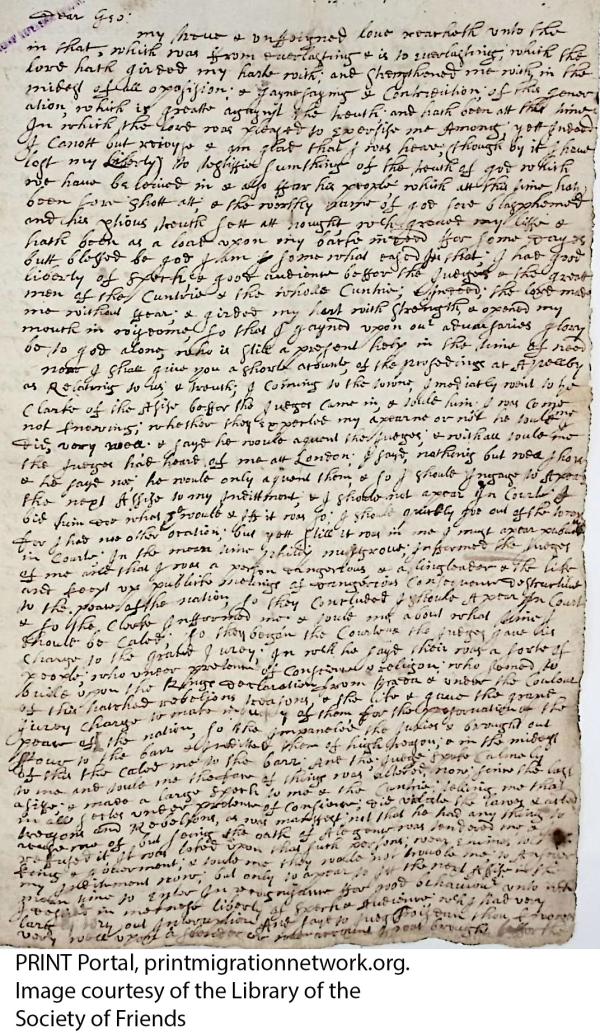 Dear Geo:
my true & unfeigned love reacheth unto the
in that, which was from everlasting & is to everlasting, which the
lord hath girded my harte with, and strengthened me with, in the
midest of all oposision: & gaynesayings & Contredition, of this gener
ation, which is greate against the truth and hath been att this time
In which the lord was pleased to exersise me Among, yett Indeed
I Canott but rejoyse & am glad that I was hear, though by it I have
lost my liberty, to testifie sumthing of the truth of god which
we have beleived in & also ffor his people which att this time hath
been sore shott att & the worthy name of god sore blasphemed
and his presious truth sett att nought, wch greved my liffe &
hath been as a load upon my harte indeed ffor some dayes
butt blessed be god I am some what eased In that, I had good
liberty of speech & good audience beffor the Judges & the great
men of the Cuntrie & the whole Cuntrie; Indeed: the lord made
me without fear: & girded my hart with strength & opened my
mouth in wisdome, so that I gayned upon our advarsaries glory
be to god alone who is still a present help in the time of need
now I shall give you a short acounte of the proseedings at Apellby
as Relating to us & truth; I Coming to the towne, Imediatly went to the
Clarke of the Asise beffor the Judges Came in, & tould him: I was Come
not knowing, whether they expected my apearne or not he tould me
very well: & sayd he would aquent the Judges: & withall tould me
the Judges had heard of me att London: I sayd nothing but was thare
& he sayd no; he would only aquent them & so I should Ingage to Apear
the next Asise to my Inditment, & I should not apear In Courte, I
bid him doe what I would & iff it was so: I should quickly goe out of the towne
for I had noe other ocation; but yett still it was in me I must apear publik
in Courte: In the mean time phillip musgrove: Informed the Judges
of me and that I was a person dangerous & a Ringleader & the like
and keept up publike metings of dangerous Consequence destructive
to the peace of the nation so they Concluded I should Apear In Court
& so the Clerk Informed me: & tould me about what time I
should be Caled: so they began the Courte & the Judges gave his
Charge to the grand Jurey: In wch he sayd their was a sorte of
people, who under pretence of Consience & Religion: who semed to
build upon the Kings declaration from Breda & under the Coulour
of this hatched rebelions treasons, & the like & gave the grand
Jurey Charge to make of them for the preservation of the
peace of the nation so the impaneled the Juries & brought out
to the barr & Indited them of high treason; & in the midest
of that the Caled me to the barr: And the Judge spake
to me and tould me the face of things was altered, now: since the last
asise: & made a large speech to me & the Cuntrie: telling me that
in all sectes under pretence of Consience, did violate the lawes & acted
treasons and Rebelions, as was manifest: not that he had any thing to
acuse me of but seing the oath of Alegance was tendered me &
refused it, it was loked upon that such persons, wear enimes to the
king & goverment: & tould me they would not trouble me to Answer
my Inditement now: but only to apear to itt the next Assise & in the
mean time to Enter In recognisance ffor good behaviour unto wch
I replied in mekness liberty of speech & Audience, wch had very
large without Interuption: And sayd to Judge
very well